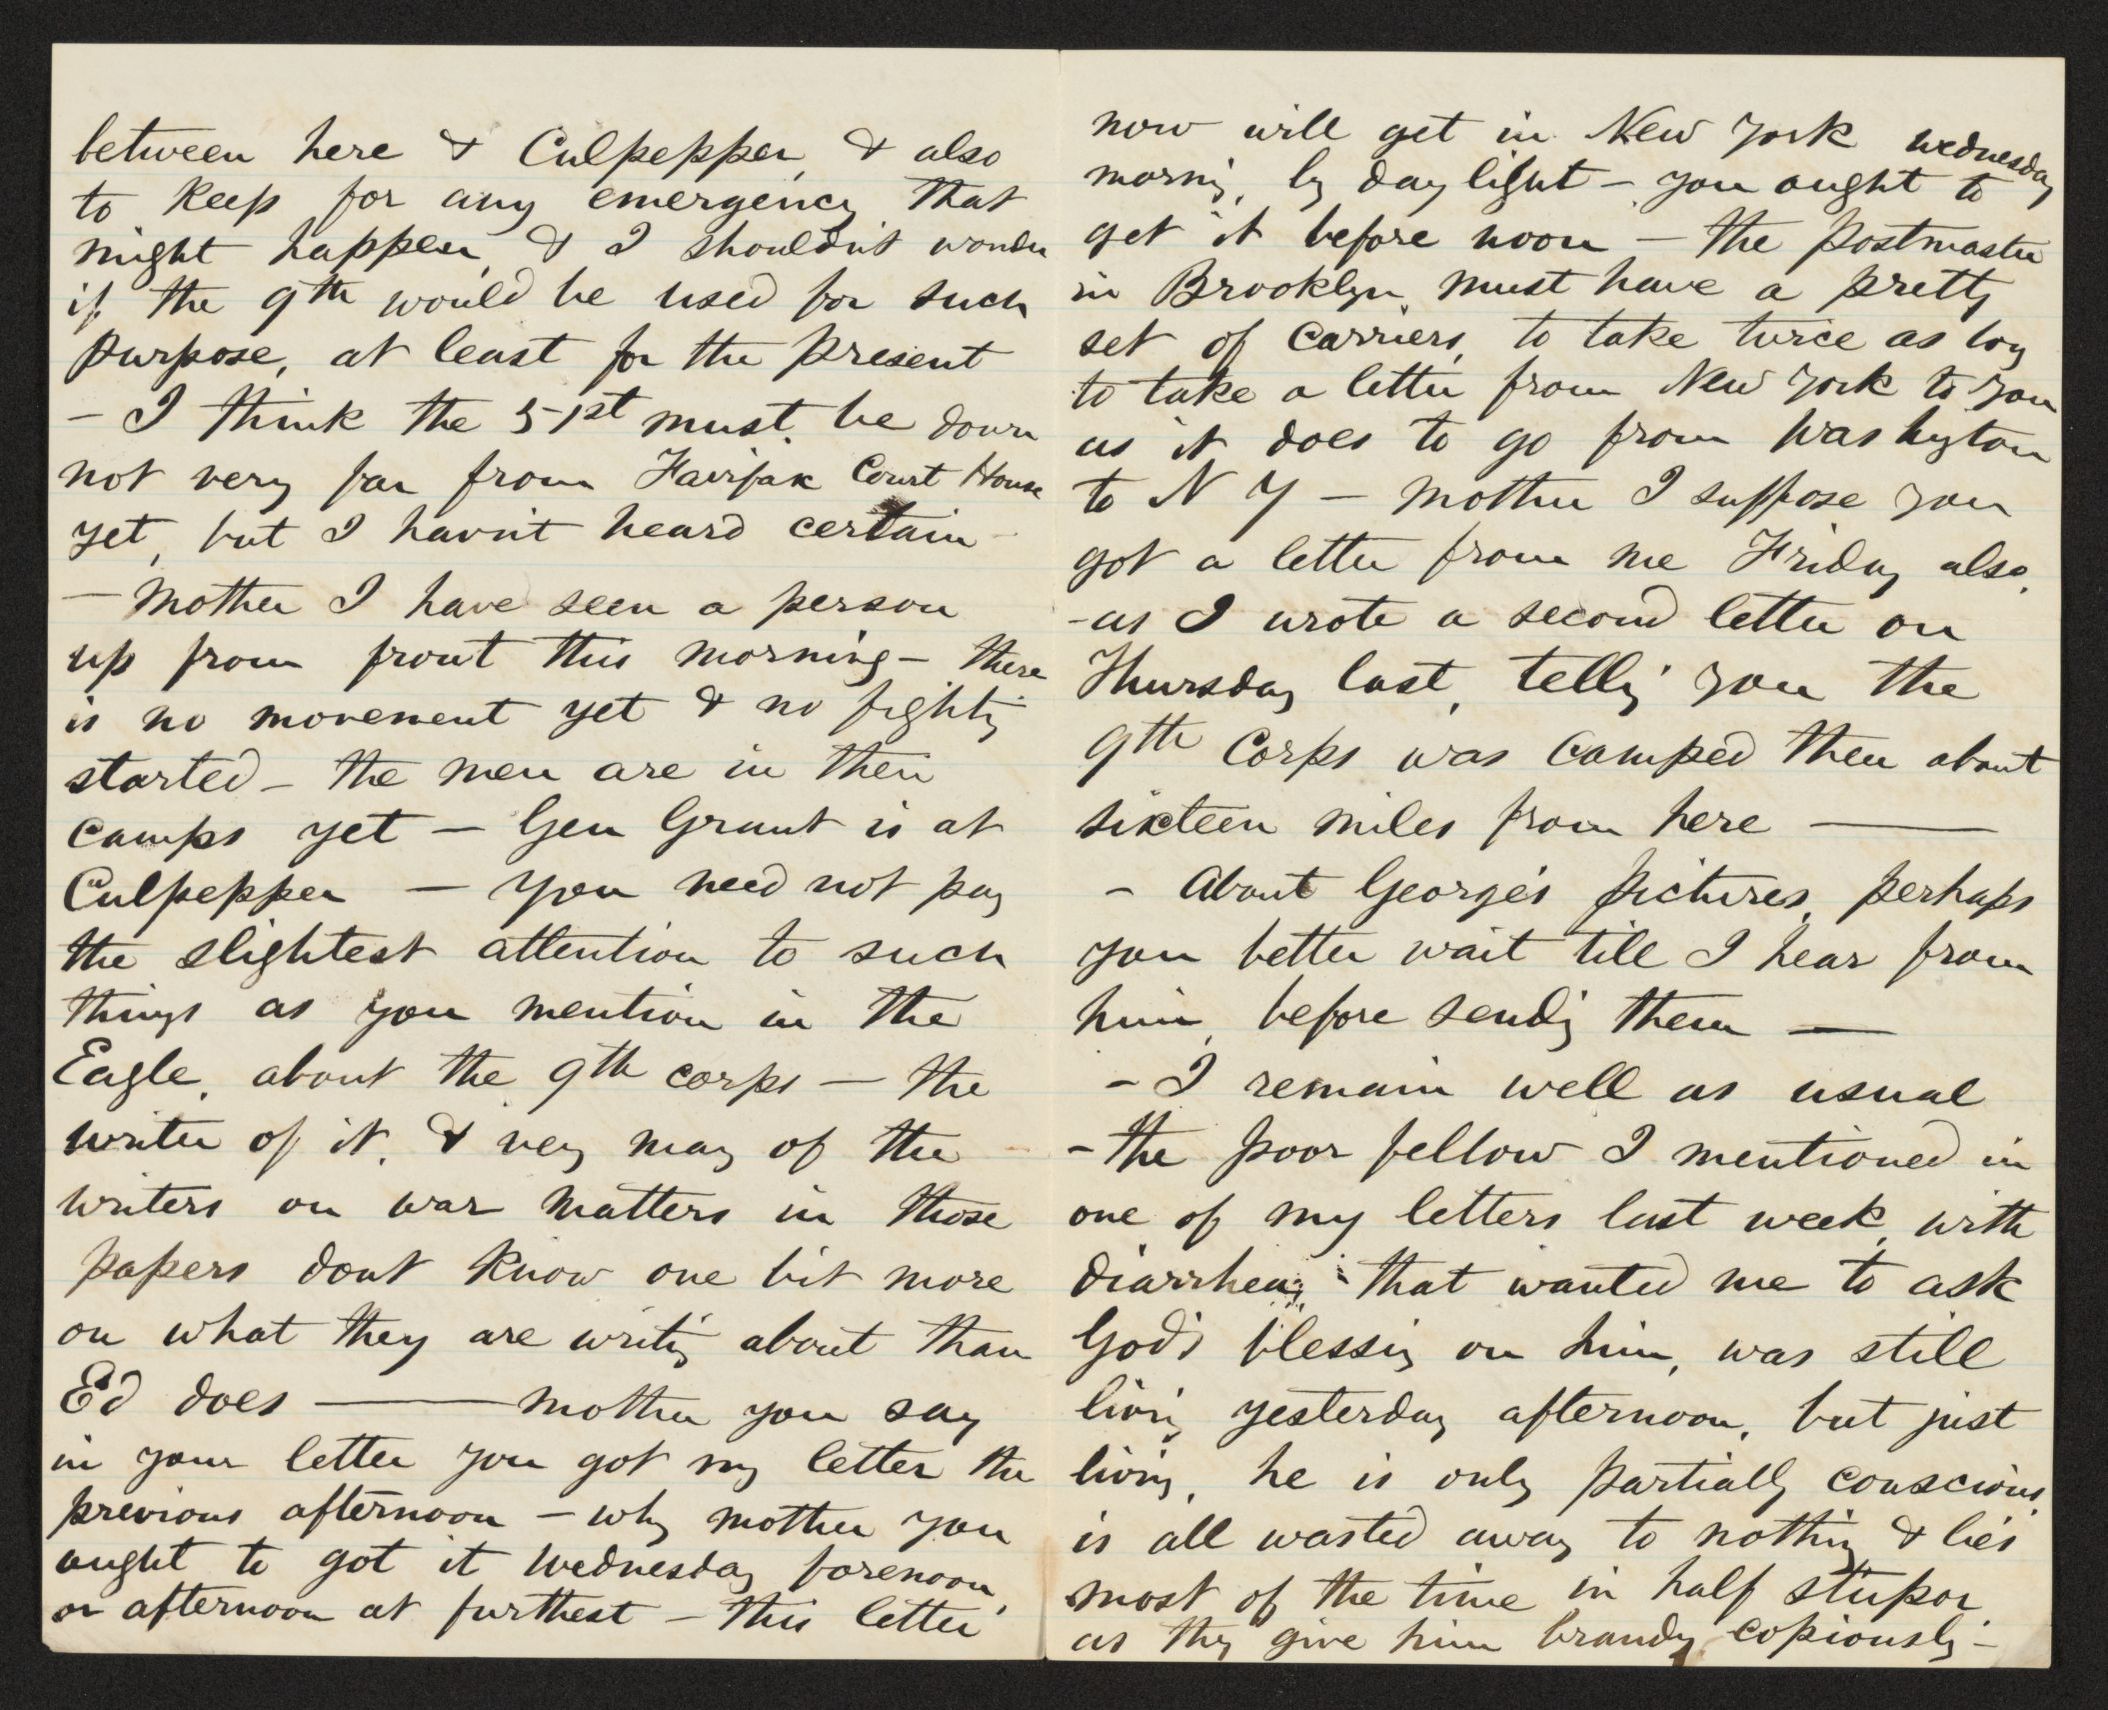 between here & Culpepper, & also
to keep for any emergency that
might happen, & I shouldn't wonder
if the 9th would be used for such
purpose, at least for the present
– I think the 51st must be down
not very far from Fairfax Court House
yet, but I havn't heard certain –
– Mother I have seen a person
up from front this morning – there
is no movement yet & no fighting
started – the men are in their
camps yet – Gen Grant is at
Culpepper – You need not pay
the slightest attention to such
things as you mention in the
Eagle, about the 9th corps – the
writer of it, & very many of the
writers on war matters in those
papers dont know one bit more
on what they are writing about than
Ed does —— Mother you say
in your letter you got my letter the
previous afternoon – why mother you
ought to got it Wednesday forenoon,
or afternoon at furthest – this letter
now will get in New York Wednesday
morning, by daylight – you ought to
get it before noon – the postmaster
in Brooklyn must have a pretty
set of carriers, to take twice as long
to take a letter from New York to you
as it does to go from Washington
to N Y – Mother I suppose you
got a letter from me Friday also,
– as I wrote a second letter on
Thursday last, telling you the
9th Corps was camped then about
sixteen miles from here ——
– About George's pictures, perhaps
you better wait till I hear from
him, before sending them —
– I remain well as usual
– the poor fellow I mentioned in
one of my letters last week, with
diarrhea, that wanted me to ask
God's blessing on him, was still
living yesterday afternoon, but just
living, he is only partially conscious,
is all wasted away to nothing, & lies
most of the time in half stupor,
as they give him brandy copiously –